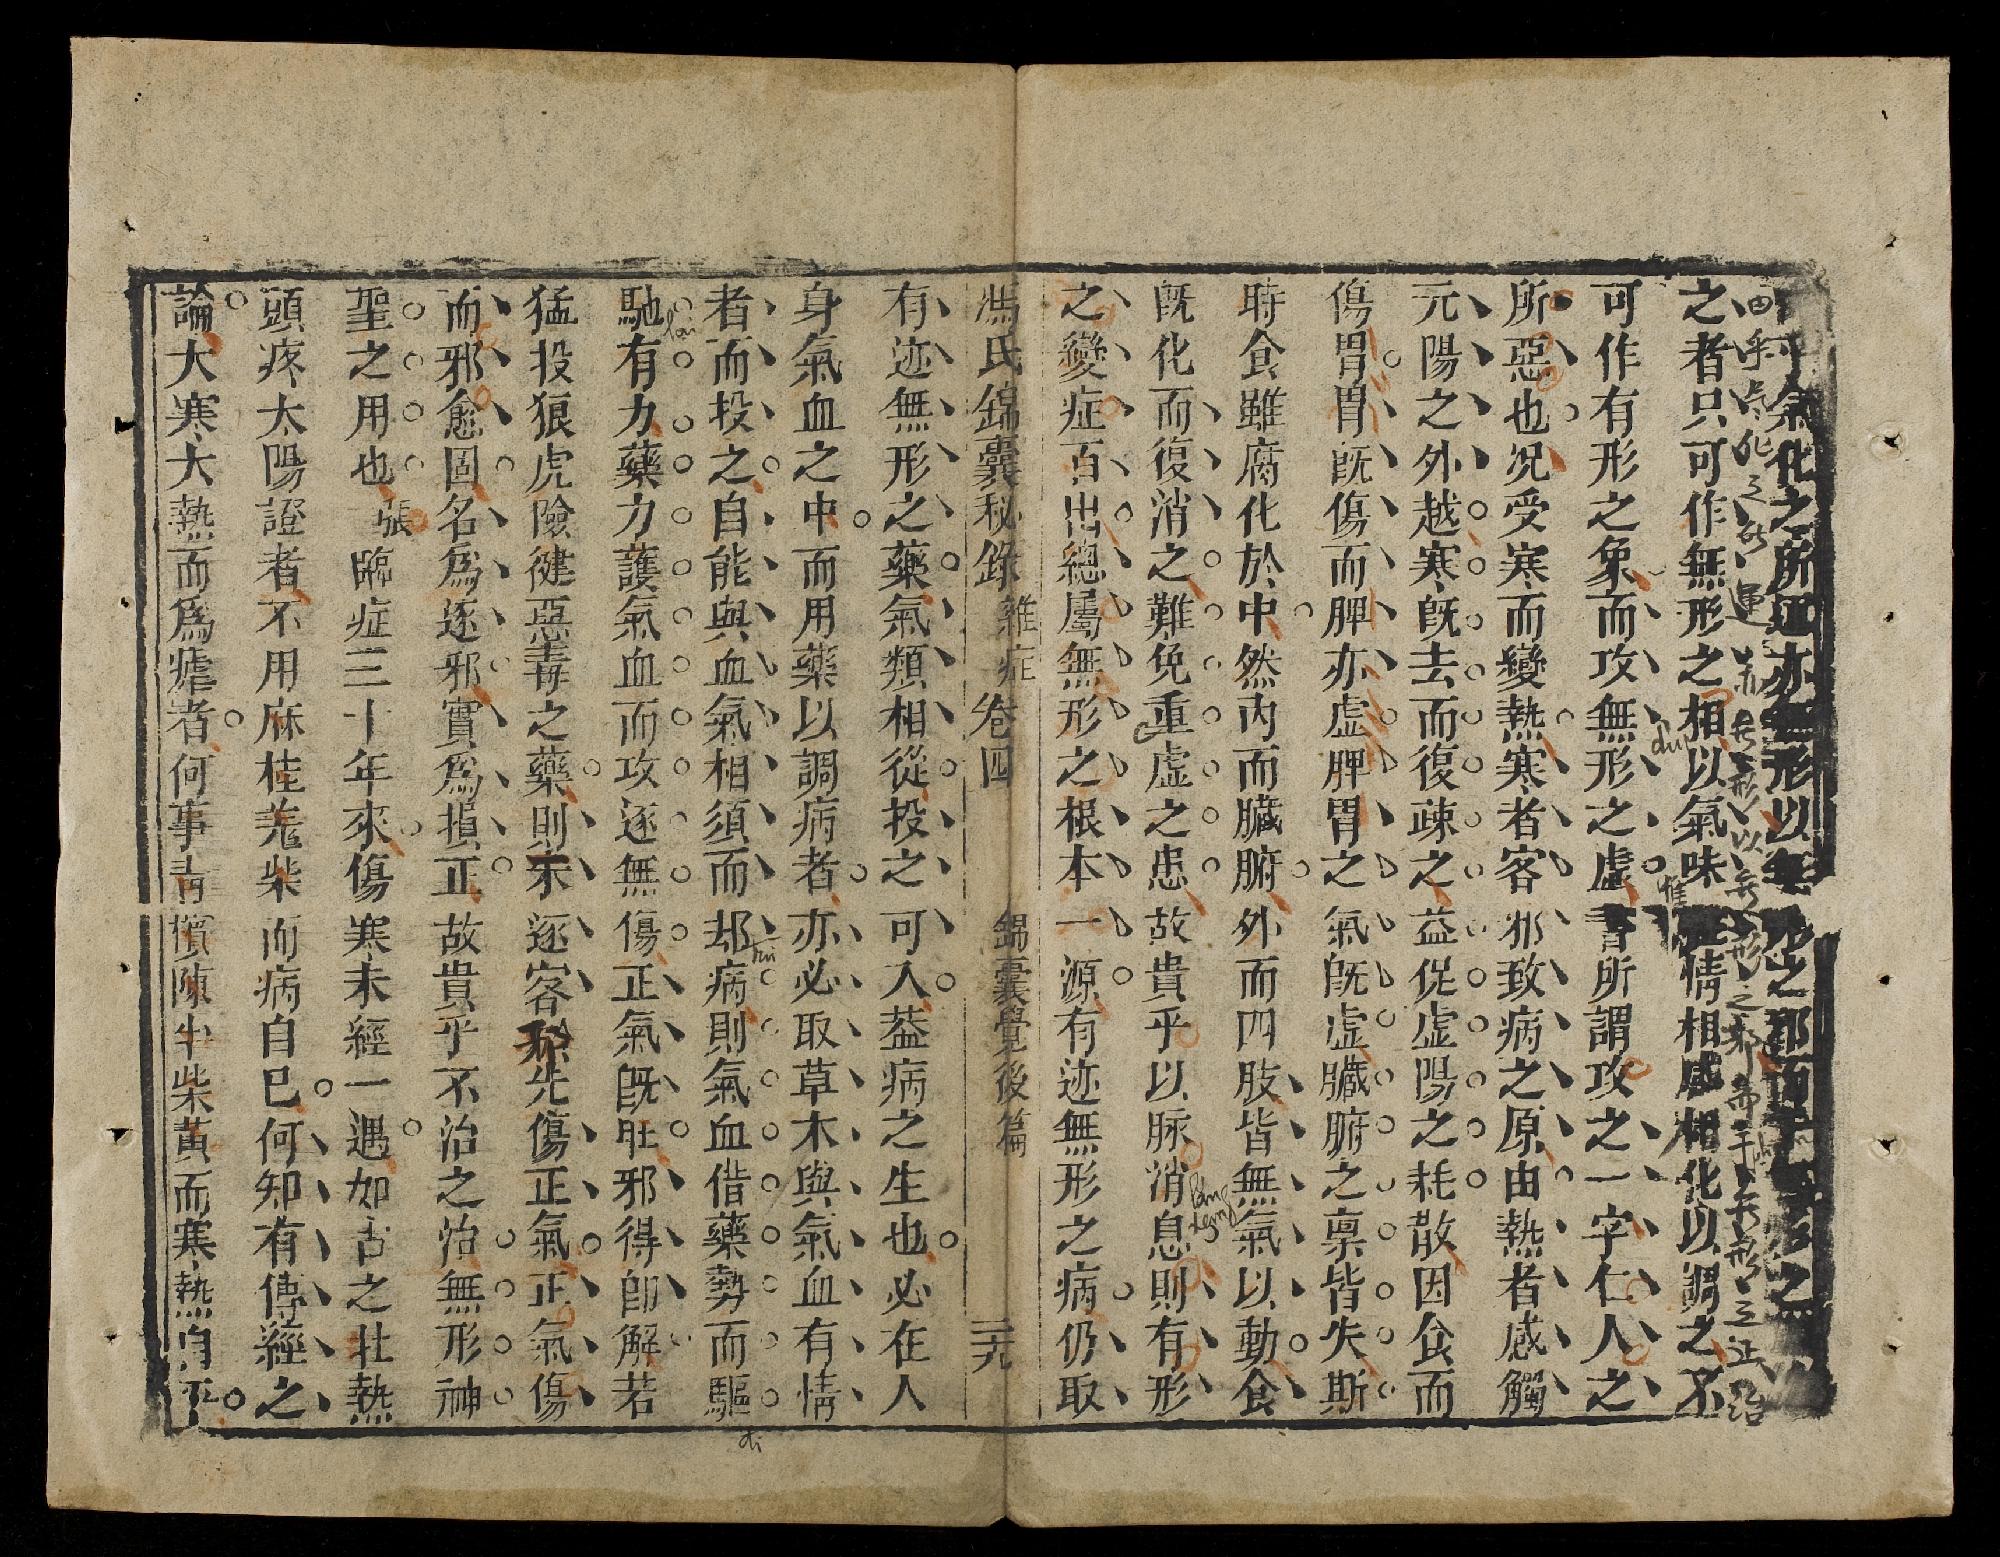 由乎氣化之所運亦無形以無形之邪而干無形之正治
之者只可作無形之相以氣味性情相感相化以調之不
可作有形之象而攻無形之虛書所謂攻之一字仁人之
所惡也況受寒而變熱寒者客邪致病之原由熱者感觸
元陽之外越寒旣去而復疎之益促虛陽之耗散因食而
傷胃胃旣傷而脾亦虛脾胃之氣旣虛臟腑之禀皆失斯
時食雖腐化於中然內而臟腑外而四肢皆無氣以動食
旣化而復消之難免重虛之患故貴乎以脉消息則有形
之變症百出總屬無形之根本一源有迹無形之病仍取
馮氏錦囊秘錄 雜症 卷四 錦囊覺後篇 三九
有迹無形之藥氣類相從投之可入葢病之生也必在人
身氣血之中而用藥以調病者亦必取草木與氣血有情
者而投之自能與血氣相須而却病則氣血偕藥勢而驅
馳有力藥力護氣血而攻逐無傷正氣旣壯邪得卽解若
猛投狼虎險健惡毒之藥則未逐客邪先傷正氣正氣傷
而邪愈固名爲逐邪實爲損正故貴乎不治之治無形神
聖之用也張臨症三十年來傷寒未經一遇如古之壯熱
頭疼太陽證者不用麻桂羗柴而病自已何知有傳經之
論大寒大熱而爲瘧者何事青檳陳半柴黃而寒熱自平
lai
dup
khi
Pam
tem
di
惟